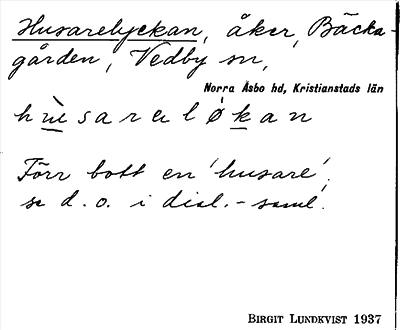 Husarelyckan, åker, Bäcka-
gården, Vedby sn,
Norra Åsbo hd, Kristianstads län
husarelökan
Förr bott en 'husare'.
se d. o. i dial.-saml.
BIRGIT LUNDKVIST 1937